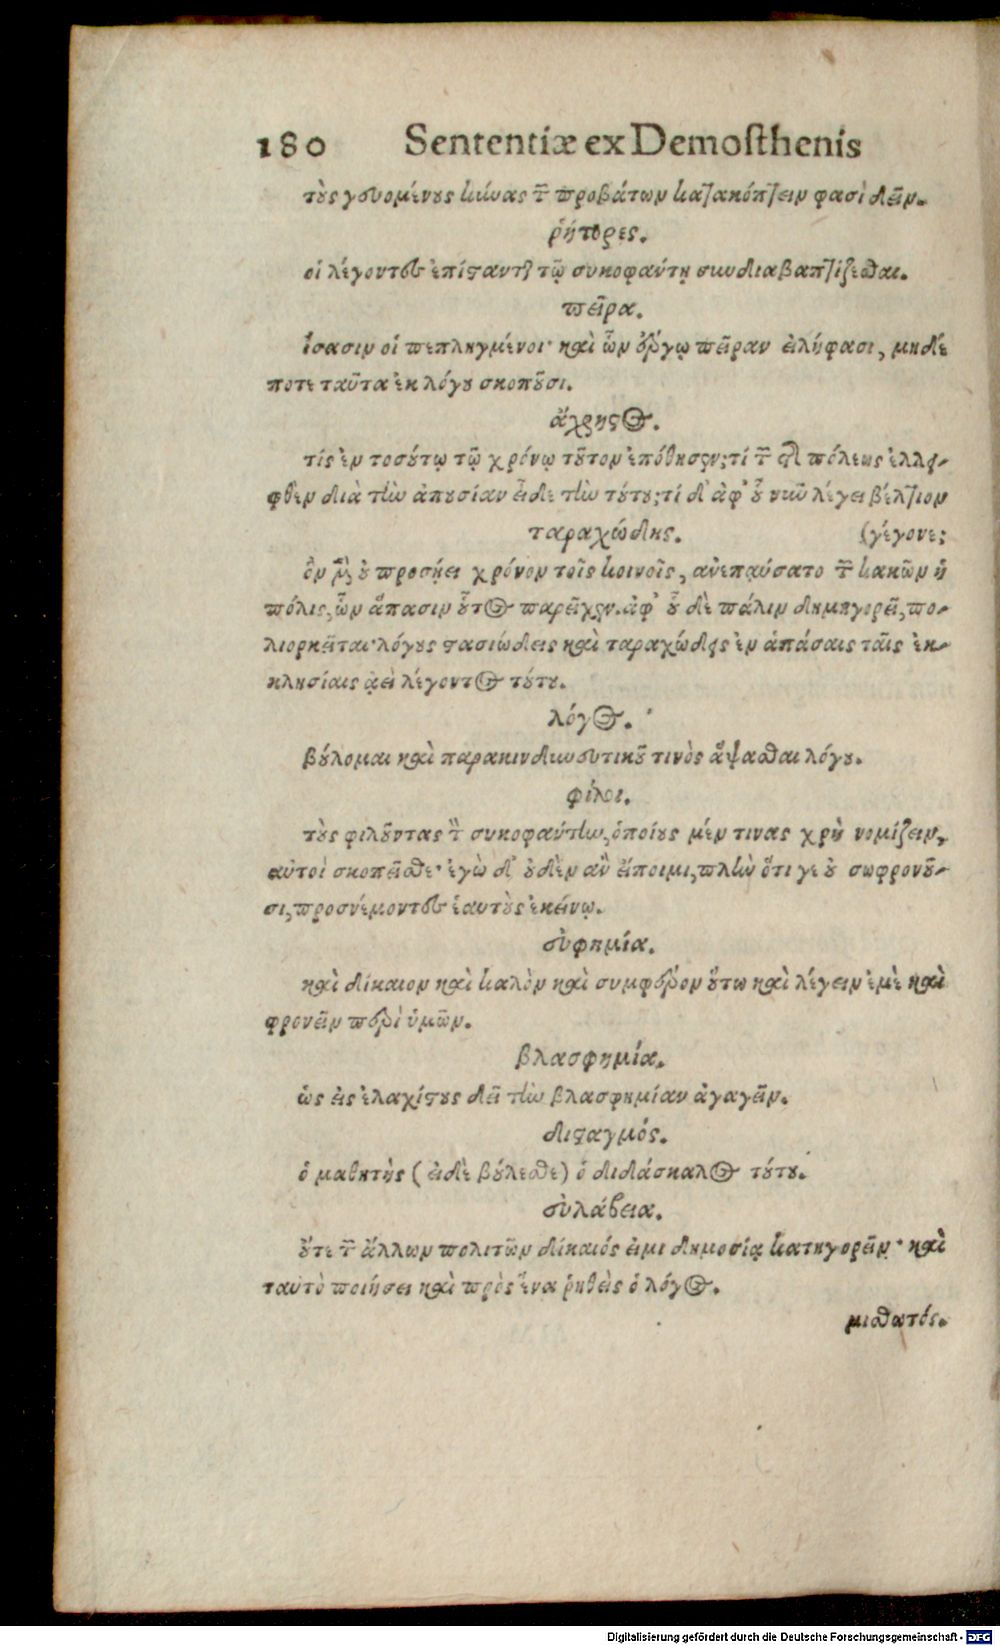 180 Sententiæ ex Demosthenis
τοὺς γευομένους κύνας τῶν προβάτων κατακόπτειν φασὶ δεῖν.
ῥήτορες.
οἱ λέγοντες ἐπίστανται τῷ συκοφάντῃ συνδιαβαπτίζεσθαι.
πεῖρα.
ἴσασιν οἱ πεπληγμένοι· καὶ ὧν ἔργῳ πεῖραν εἰλήφασι, μηδέ
ποτε ταῦτα ἐκ λόγου σκοποῦσι.
ἄχρηστος.
τίς ἐν τοσούτῳ τῷ χρόνῳ τοῦτον ἐπόθησεν; τί τῶν τῆς πόλεως ἐλλει-
φθὲν διὰ τὴν ἀπουσίαν εἶδε τὴν τούτου; τί δ' ἀφ' οὗ νῦν λέγει βέλτιον
ταραχώδης. (γέγονε;
ὃν μὲν γὰρ οὐ προσῄει χρόνον τοῖς κοινοῖς, ἀνεπαύσατο τῶν κακῶν ἡ
πόλις, ὧν ἅπασιν οὗτος παρεῖχεν. ἀφ' οὗ δὲ πάλιν δημηγορεῖ, πο-
λιορκεῖται· λόγους στασιώδεις καὶ ταραχώδεις ἐν ἁπάσαις ταῖς ἐκ-
κλησίαις ἀεὶ λέγοντος τούτου.
λόγος.
βούλομαι καὶ παρακινδυνευτικοῦ τινὸς ἅψασθαι λόγου.
φίλοι.
τοὺς φιλοῦντας τὸν συκοφάντην, ὁποίους μέν τινας χρὴ νομίζειν,
αὐτοὶ σκοπεῖσθε· ἐγὼ δ' οὐδὲν ἂν εἴποιμι, πλὴν ὅτι γε οὐ σωφρονοῦ-
σι, προσνέμοντες ἑαυτοὺς ἐκείνῳ.
εὐφημία.
καὶ δίκαιον καὶ καλὸν καὶ συμφέρον οὕτω καὶ λέγειν ἐμὲ καὶ
φρονεῖν περὶ ὑμῶν.
βλασφημία.
ὡς εἰς ἐλαχίστους δεῖ τὴν βλασφημίαν ἀγαγεῖν.
δισταγμός.
ὁ μαθητὴς (εἰ δὲ βούλεσθε) ὁ διδάσκαλος τούτου.
εὐλάβεια.
οὔτε τῶν ἄλλων πολιτῶν δίκαιός εἰμι δημοσίᾳ κατηγορεῖν· καὶ
ταυτὸ ποιήσει καὶ πρὸς ἕνα ῥηθεὶς ὁ λόγος.
μισθωτός.
Digitalisierung gefördert durch die Deutsche Forschungsgemeinschaft - DFG